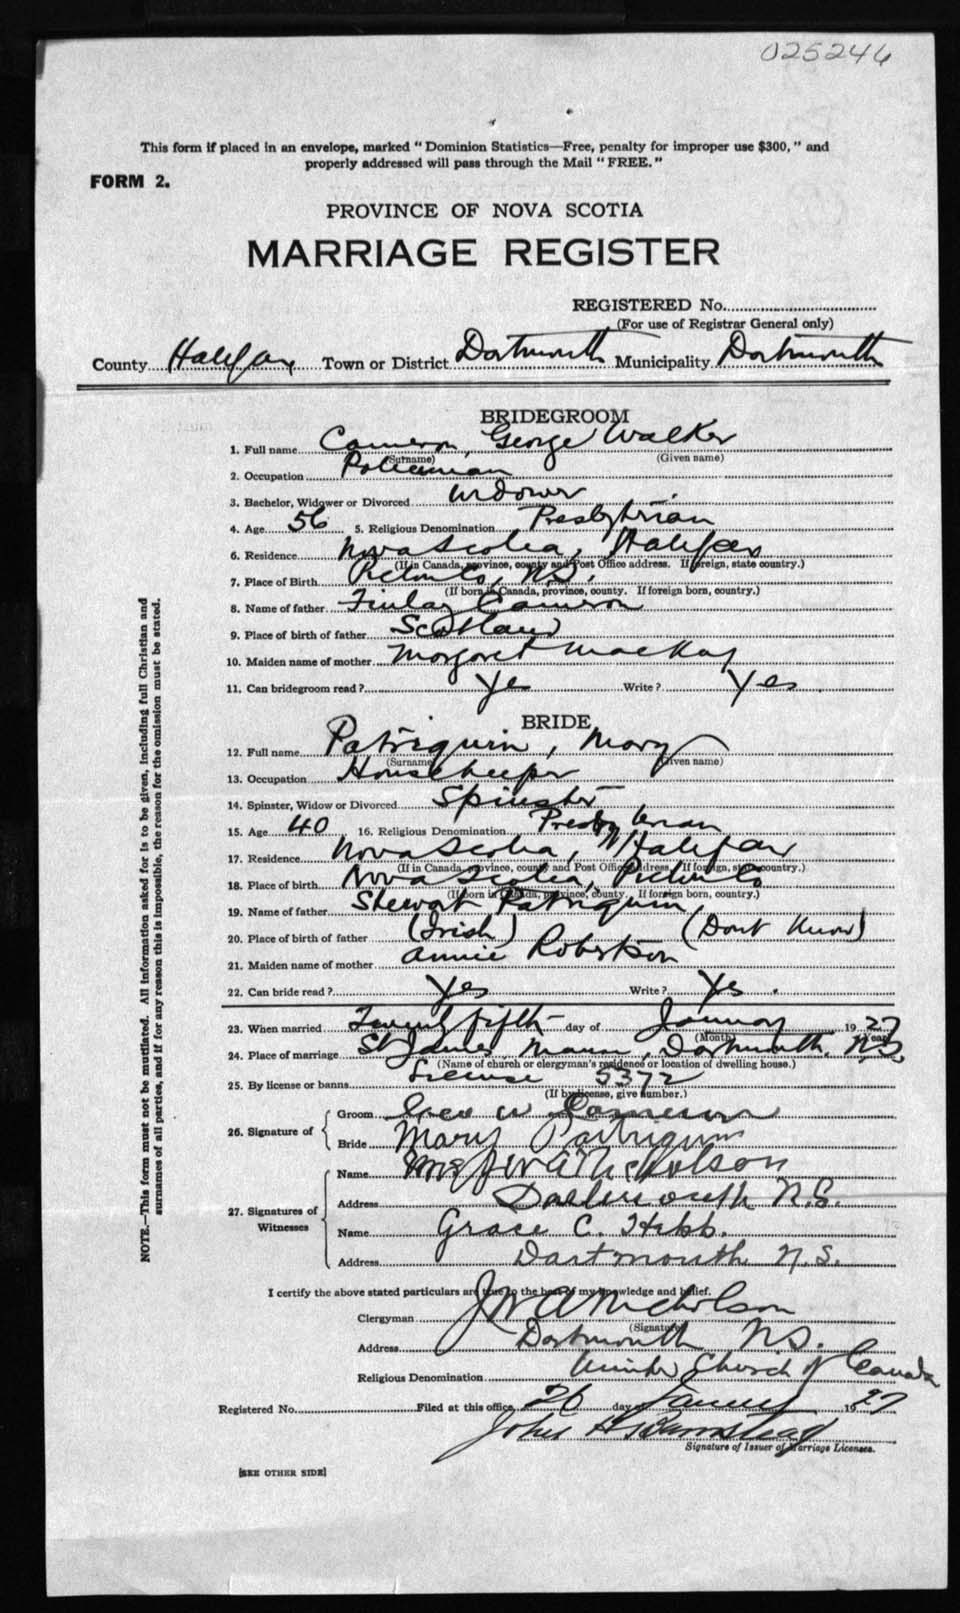 025246
This form if placed in an envelope, marked "Dominion Statistics—Free, penalty for improper use $300," and
properly addressed will pass through the Mail "FREE."
FORM 2.
PROVINCE OF NOVA SCOTIA
MARRIAGE REGISTER
REGISTERED No.
(For use of Registrar General only)
County Halifax Town or District Dartmouth Municipality Dartmouth
BRIDEGROOM
1. Full name Cameron, George Walker
(Surname) (Given name)
2. Occupation Policeman
3. Bachelor, Widower or Divorced Widower
4. Age 56 5. Religious Denomination Presbyterian
6. Residence Nova Scotia, Halifax
(If in Canada, province, county and Post Office address. If foreign, state country.)
7. Place of Birth Pictou Co, N.S.
(If born in Canada, province, county. If foreign born, country.)
8. Name of father Finlay Cameron
9. Place of birth of father Scotland
10. Maiden name of mother Margaret MacKay
11. Can bridegroom read? Yes Write? Yes
BRIDE
12. Full name Patriquin, Mary
(Surname) (Given name)
13. Occupation Housekeeper
14. Spinster, Widow or Divorced Spinster
15. Age 40 16. Religious Denomination Presbyterian
17. Residence Nova Scotia, Halifax
(If in Canada, province, county and Post Office address. If foreign, state country.)
18. Place of birth Nova Scotia, Pictou Co
(If born in Canada, province, county. If foreign born, country.)
19. Name of father Stewart Patriquin
20. Place of birth of father (Irish) (Dont Know)
21. Maiden name of mother Annie Robertson
22. Can bride read? Yes Write? Yes.
23. When married Twenty fifth day of January 1927
(Month) (Year)
24. Place of marriage St James Manse, Dartmouth. N.S.
(Name of church or clergyman's residence or location of dwelling house.)
25. By license or banns License 5372
(If by license, give number.)
26. Signature of Groom Geo W Cameron
Bride Mary Patriquin
27. Signatures of Witnesses Name Mrs J W A Nicholson
Address Dartmouth N.S.
Name Grace C. Hebb.
Address Dartmouth N.S.
I certify the above stated particulars are true to the best of my knowledge and belief.
Clergyman J W A Nicholson
(Signature)
Address Dartmouth N.S.
Religious Denomination United Church of Canada
Registered No. Filed at this office 26 day of January 1927
John H Barnstead
Signature of Issuer of Marriage Licenses.
[SEE OTHER SIDE]
NOTE.—This form must not be mutilated. All information asked for is to be given, including full Christian and
surnames of all parties, and if for any reason this is impossible, the reason for the omission must be stated.